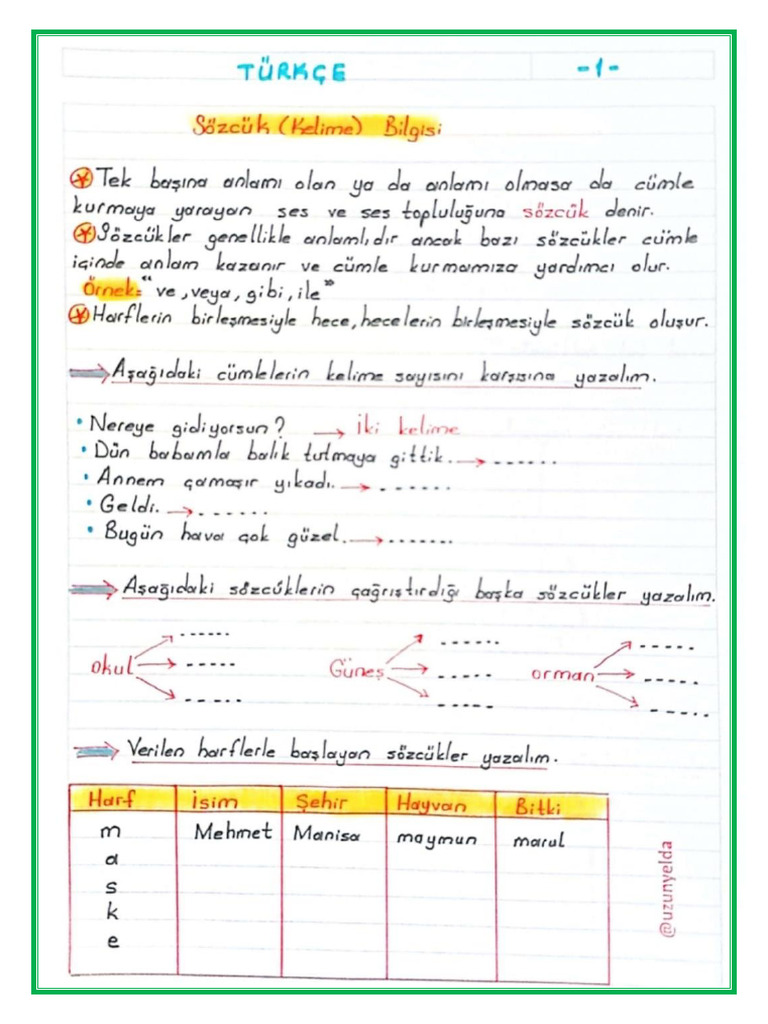 TÜRKÇE -1-
Sözcük (Kelime) Bilgisi
Tek başına anlamı olan ya da anlamı olmasa da cümle
kurmaya yarayan ses ve ses topluluğuna sözcük denir.
Sözcükler genellikle anlamlıdır ancak bazı sözcükler cümle
içinde anlam kazanır ve cümle kurmamıza yardımcı olur.
Örnek: "ve, veya, gibi, ile"
Harflerin birleşmesiyle hece, hecelerin birleşmesiyle sözcük oluşur.
Aşağıdaki cümlelerin kelime sayısını karşısına yazalım.
• Nereye gidiyorsun? → İki kelime
• Dün babamla balık tutmaya gittik. → .......
• Annem çamaşır yıkadı. → .......
• Geldi. → .......
• Bugün hava çok güzel. → .......
Aşağıdaki sözcüklerin çağrıştırdığı başka sözcükler yazalım.
okul Güneş orman
Verilen harflerle başlayan sözcükler yazalım.
Harf İsim Şehir Hayvan Bitki
m Mehmet Manisa maymun marul
a
s
k
e
@uzunyelda